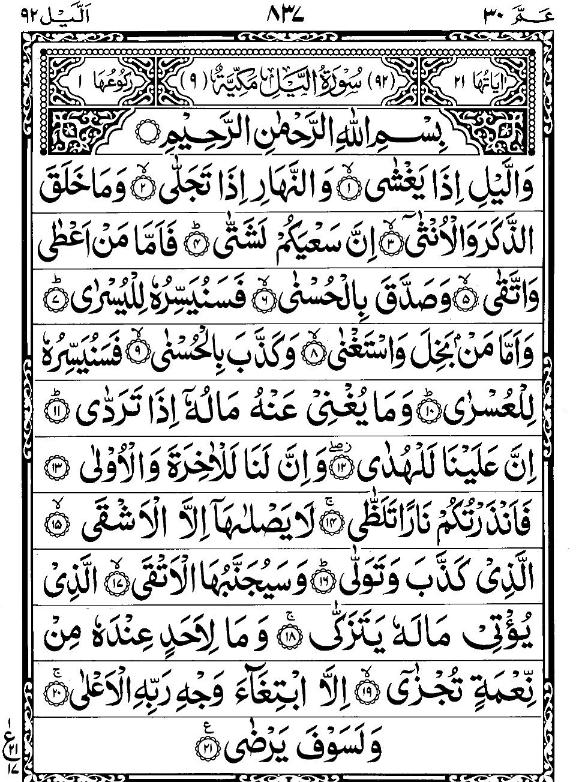 عـمّ ٣٠ ٨٣٧ الّيل ٩٢
اٰيَاتُهَا ٢١ (٩٢) سُوْرَةُ الَّيْلِ مَكِّيَّةٌ (٩) رُكُوْعُهَا ١
بِسْمِ اللّٰهِ الرَّحْمٰنِ الرَّحِيْمِ
وَالَّيْلِ اِذَا يَغْشٰى ۙ﴿١﴾ وَالنَّهَارِ اِذَا تَجَلّٰى ۙ﴿٢﴾ وَمَا خَلَقَ
الذَّكَرَ وَالْاُنْثٰٓى ۙ﴿٣﴾ اِنَّ سَعْيَكُمْ لَشَتّٰى ؕ﴿٤﴾ فَاَمَّا مَنْ اَعْطٰى
وَاتَّقٰى ۙ﴿٥﴾ وَصَدَّقَ بِالْحُسْنٰى ۙ﴿٦﴾ فَسَنُيَسِّرُهٗ لِلْيُسْرٰى ؕ﴿٧﴾
وَاَمَّا مَنْۢ بَخِلَ وَاسْتَغْنٰى ۙ﴿٨﴾ وَكَذَّبَ بِالْحُسْنٰى ۙ﴿٩﴾ فَسَنُيَسِّرُهٗ
لِلْعُسْرٰى ؕ﴿١٠﴾ وَمَا يُغْنِيْ عَنْهُ مَالُهٗٓ اِذَا تَرَدّٰى ؕ﴿١١﴾
اِنَّ عَلَيْنَا لَلْهُدٰى ۖ﴿١٢﴾ وَاِنَّ لَنَا لَلْاٰخِرَةَ وَالْاُوْلٰى ﴿١٣﴾
فَاَنْذَرْتُكُمْ نَارًا تَلَظّٰى ۚ﴿١٤﴾ لَا يَصْلٰىهَآ اِلَّا الْاَشْقَى ۙ﴿١٥﴾
الَّذِيْ كَذَّبَ وَتَوَلّٰى ؕ﴿١٦﴾ وَسَيُجَنَّبُهَا الْاَتْقَى ۙ﴿١٧﴾ الَّذِيْ
يُؤْتِيْ مَالَهٗ يَتَزَكّٰى ۚ﴿١٨﴾ وَمَا لِاَحَدٍ عِنْدَهٗ مِنْ
نِّعْمَةٍ تُجْزٰٓى ۙ﴿١٩﴾ اِلَّا ابْتِغَآءَ وَجْهِ رَبِّهِ الْاَعْلٰى ۚ﴿٢٠﴾
وَلَسَوْفَ يَرْضٰى ﴿٢١﴾
١
ع ٢١
١٧